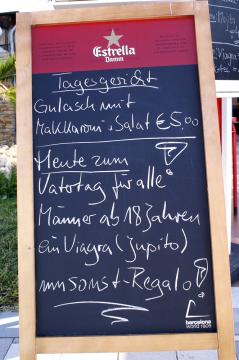 Estrella
Damm
Tagesgericht
Gulasch mit
Makkaroni + Salat €5.00
Heute zum
Vatertag für alle
Männer ab 18 Jahren
ein Viagra (Jupito)
umsonst - Regalo!
barcelona
world race